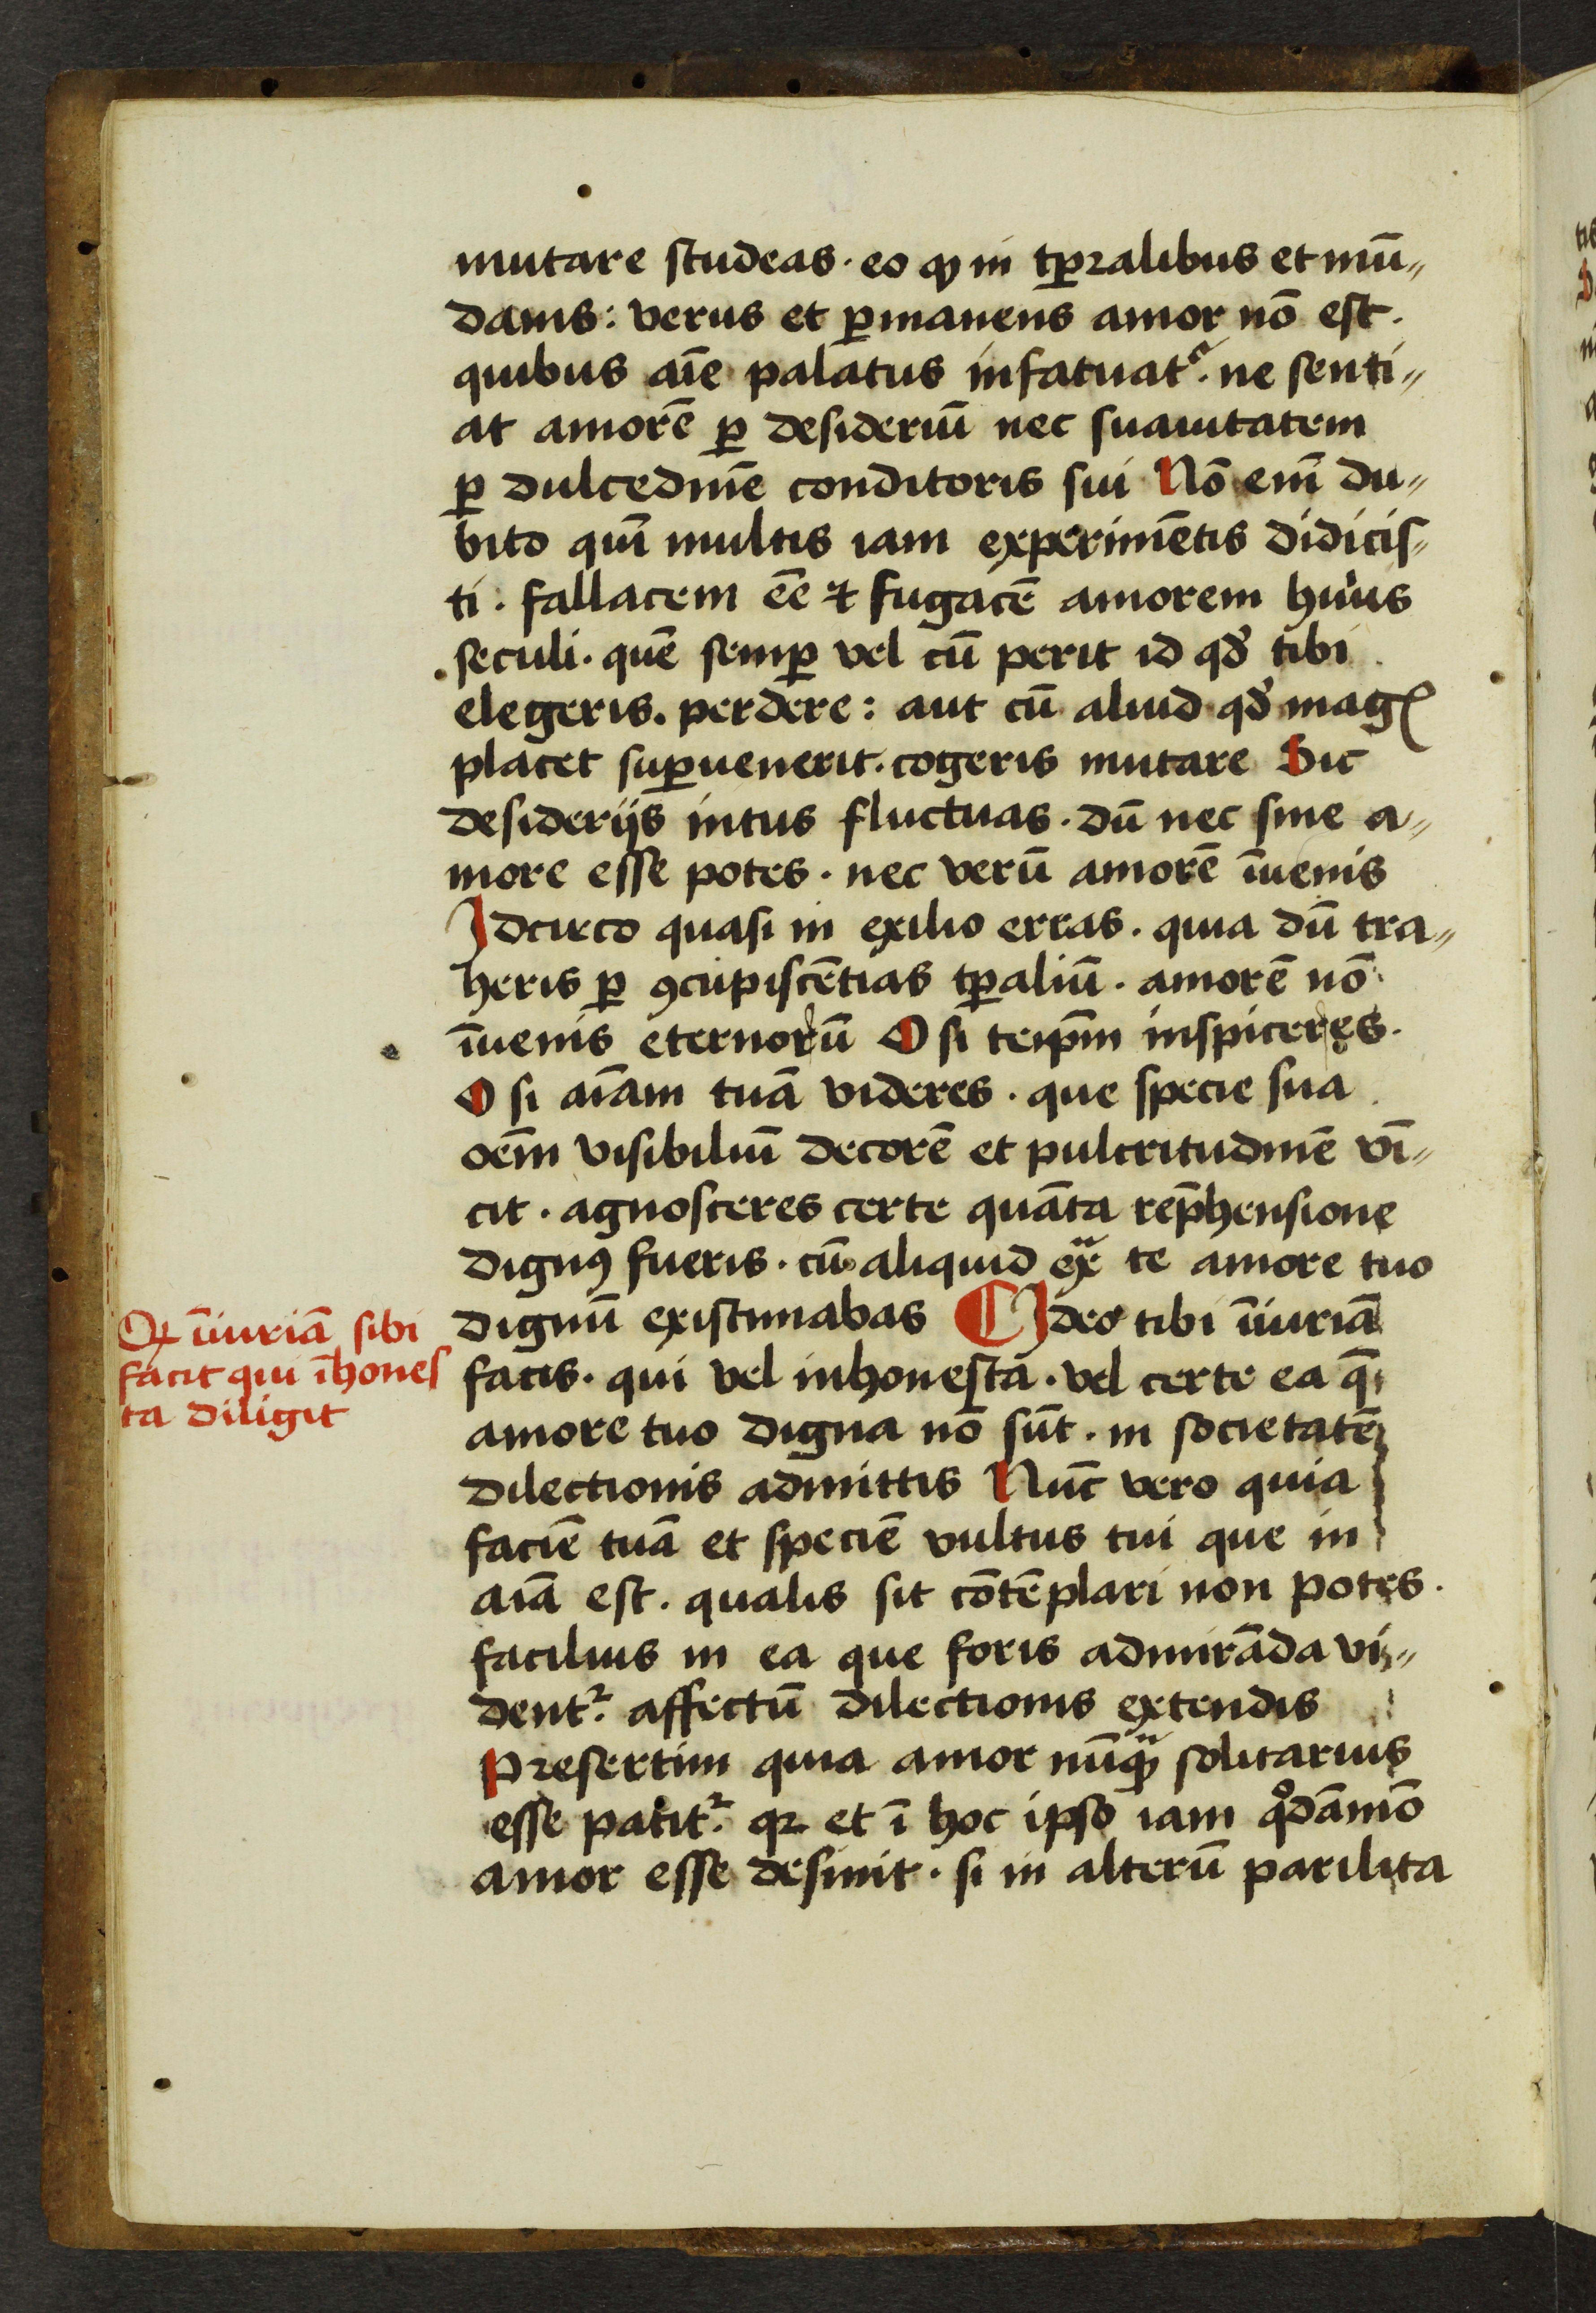 mutare studeas · eo ꝙ in tꝑ2alibus et mū„
danis : verus et ꝑmanens amor nō est ·
quibus aīe palatus infatuatᷣ · ne senti„
at amorē ꝑ desideriū nec suauitatem
ꝑ dulcedinē conditoris sui Nō enī du„
bito quī multis iam experimētis didicis„
ti · fallacem eē ⁊ fugacē amorem huius
seculi · quē semꝑ vel cū perit id qd̓ tibi
elegeris · perdere : aut cū aliud qd̓ magꝭ
placet suꝑuenerit · cogeris mutare Sic
desiderijs intus fluctuas · dū nec sine a„
more esse potes · nec verū amorē īuenis
Idcirco quasi in exilio erras · quia dū tra„
heris ꝑ ꝯcupiscētias tꝑaliū · amorē nō
īuenis eternorū O si teip̄m inspiceres ·
O si aīam tuā videres · que specie sua
oēm visibiliū decorē et pulcritudinē vī„
cit · agnosceres certe quāta rep̄hensione
dignꝰ fueris · cū aliquid exᷓ te amore tuo
dignū existimabas Ideo tibi īiuriā
facis · qui vel inhonesta · vel certe ea q̄
amore tuo digna nō sūt · in societatē
dilectionis admittis Nūc vero quia
faciē tuā et speciē vultus tui que in
aīa est · qualis sit cōtēplari non potes ·
facilius in ea que foris admirāda vi„
dentᷣ · affectū dilectionis extendis
Presertim quia amor nūꝙᷓ solitarius
esse patitᷣ · qꝛ et ī hoc ipso iam qͦdāmō
amor esse desinit · si in alterū parilita
Qꝙ īiuriā sibi
facit qui īhones
ta diligit